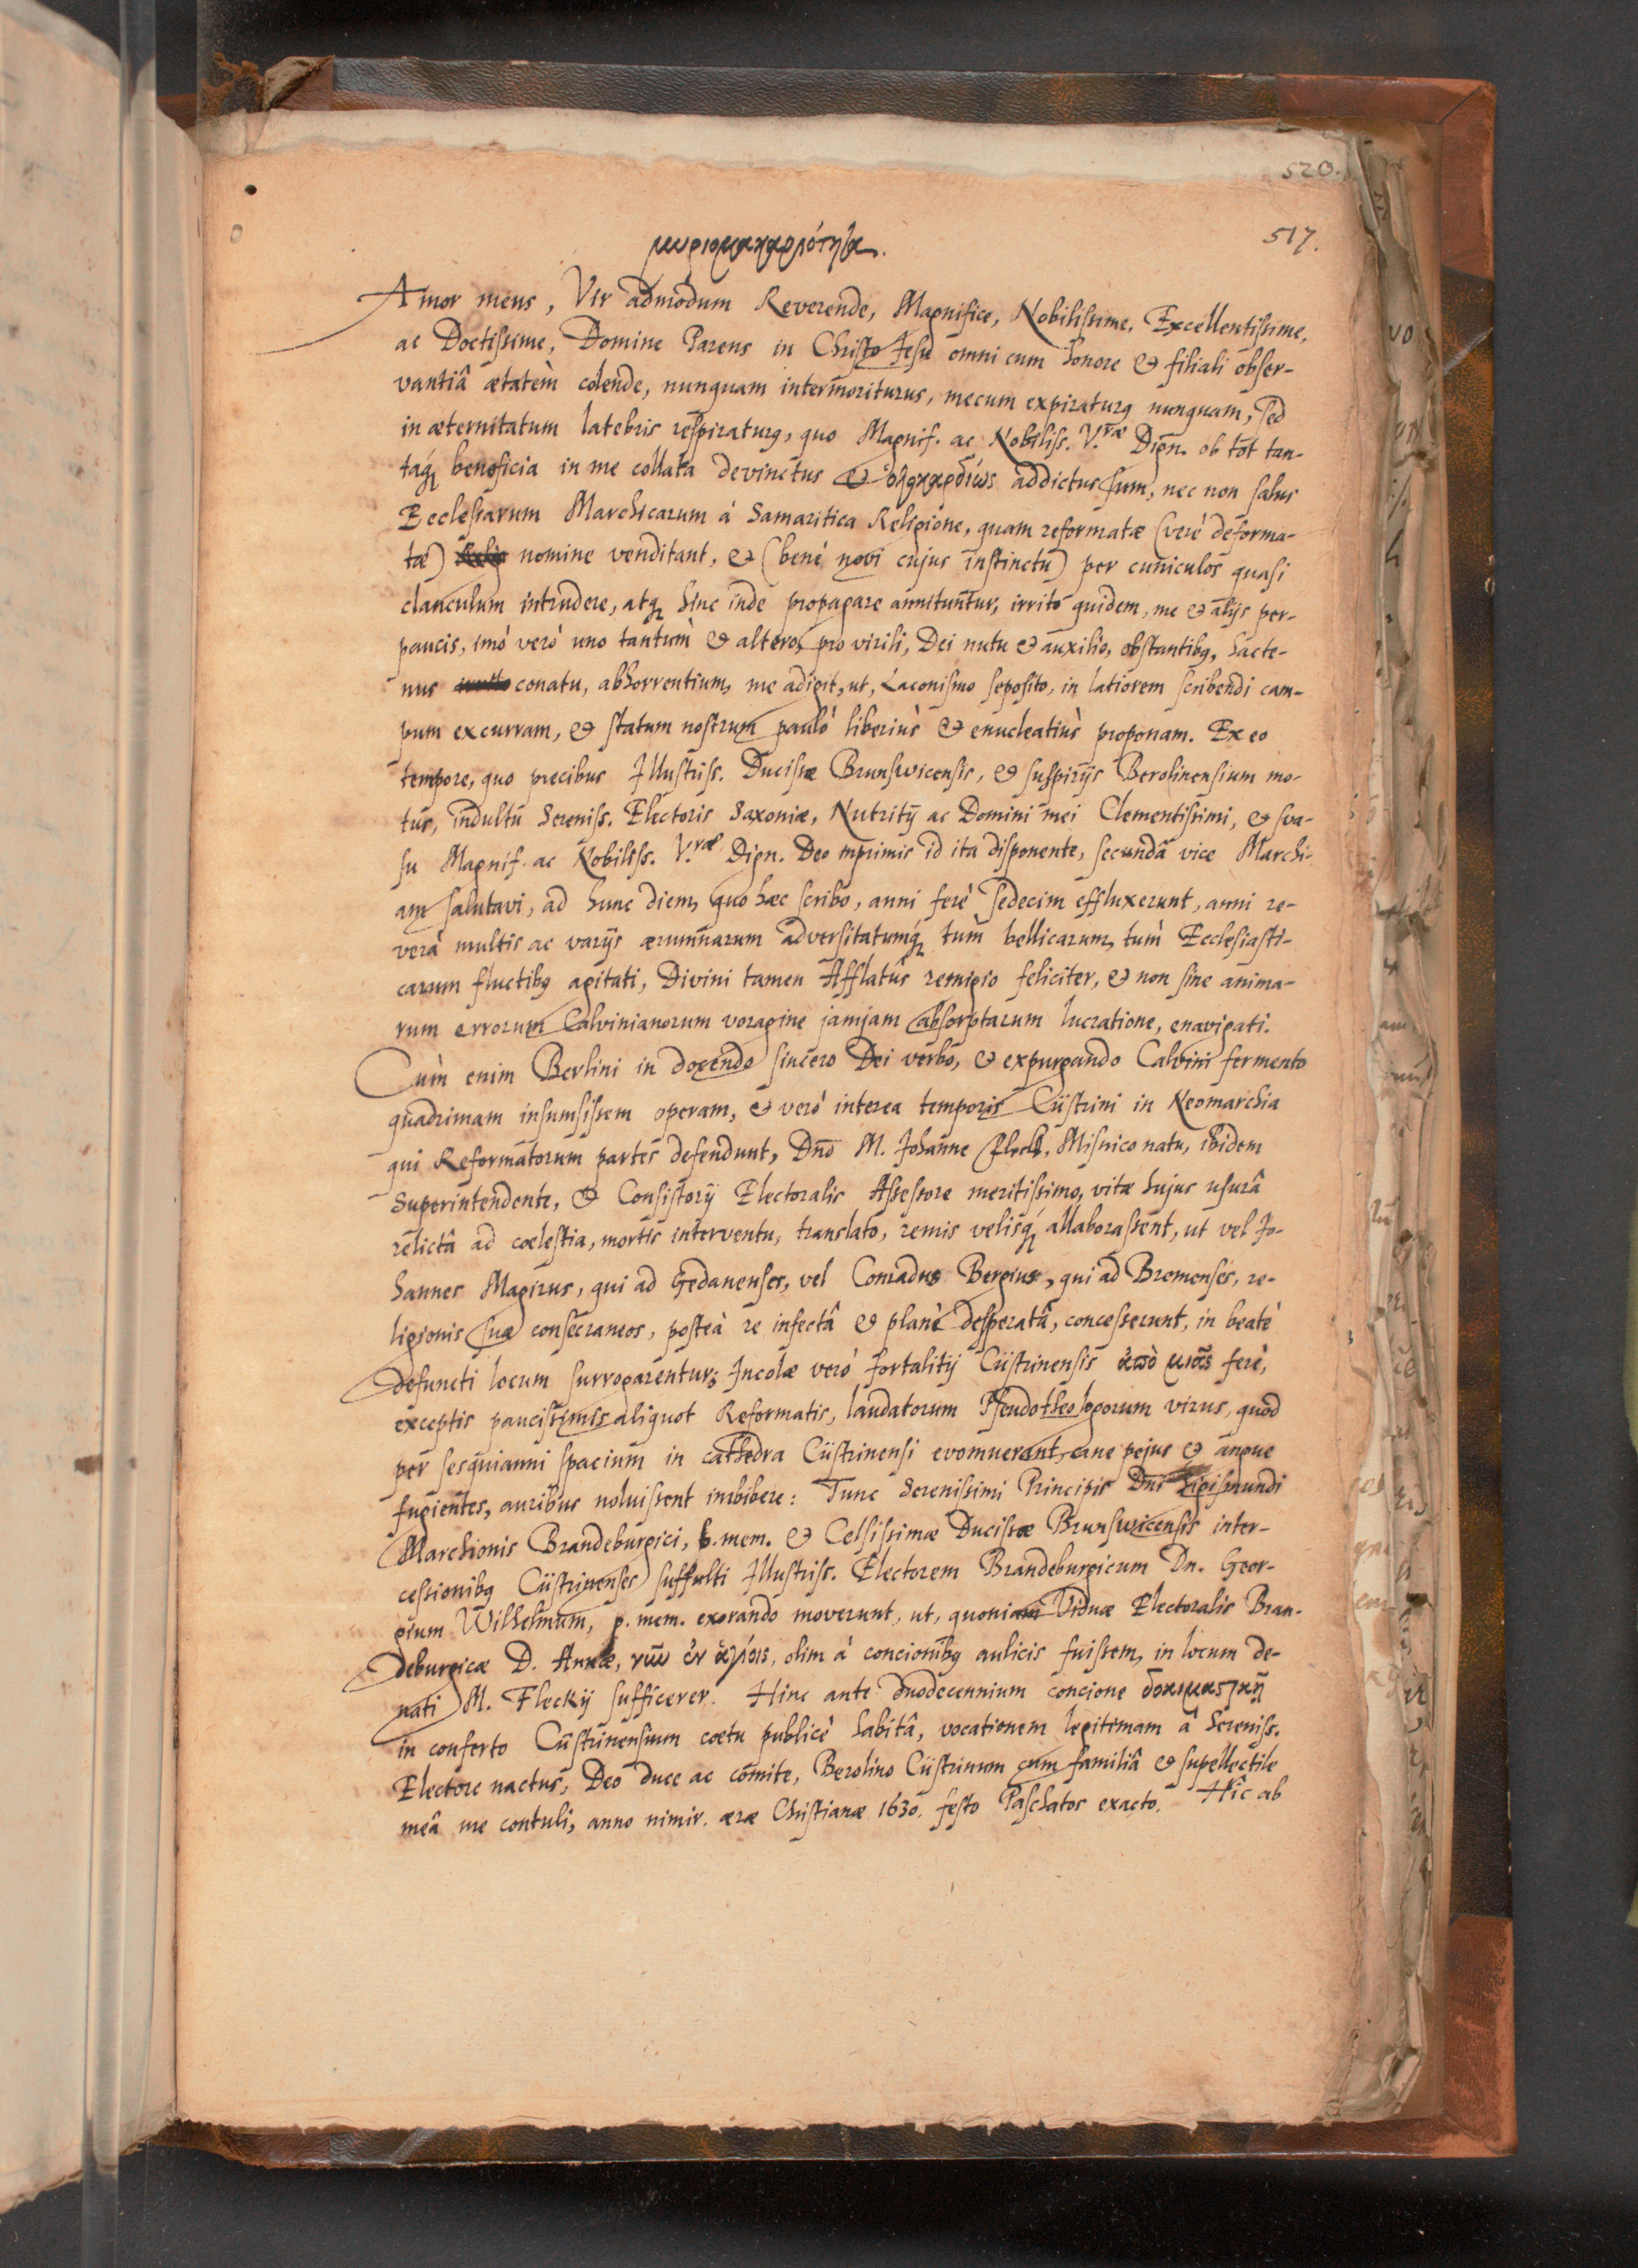 520.
517.
μυριομακαριότητα.
Amor meus, Vir admodum Reverende, Magnifice, Nobilissime, Excellentissime,
ac Doctissime, Domine Parens in Christo Jesu omni cum honore & filiali obser-
vantiâ ætatem colende, nunquam intermoriturus, mecum expiraturq nunquam, sed
in æternitatum latebris respiraturq, quo Magnif. ac Nobiliss. V.ræ Dign. ob tot tan-
taq́ beneficia in me collata devinctus & ὁλοκαρδίως addictus sum, nec non salus
Ecclesiarum Marchicarum à Samaritica Religione, quam reformatæ (verè deforma-
tæ) nomine venditant, & (benè novi cujus instinctu) per cuniculos quasi
clanculum intrudere, atq hinc inde propagare annituntur, irrito quidem, me & alijs per-
paucis, imò verò uno tantùm & altero, pro virili, Dei nutu & auxilio, obstantibq, hacte-
nus conatu, abhorrentium, me adigit, ut, Laconismo seposito, in latiorem scribendi cam-
pum excurram, & statum nostrum paulò liberiùs & enucleatiùs proponam. Ex eo
tempore, quo precibus Illustriss. Ducissæ Brunswicensis, & suspirijs Berolinensium mo-
tus, indultu Sereniss. Electoris Saxoniæ, Nutritij ac Domini mei Clementissimi, & sva-
su Magnif. ac Nobiliss. V.ræ Dign. Deo inprimis id ita disponente, secundâ vice Marchi-
am salutavi, ad hunc diem, quo hæc scribo, anni ferè sedecim effluxerunt, anni re-
verà multis ac varijs ærumnarum adversitatumq́ tùm bellicarum, tùm Ecclesiasti-
carum fluctibq agitati, Divini tamen Afflatûs remigio feliciter, & non sine anima-
rum errorum Calvinianorum voragine jamjam absorptarum lucratione, enavigati.
Cùm enim Berlini in docendo sincero Dei verbo, & expurgando Calvini fermento
quadrimam insumsissem operam, & verò interea temporis Cüstrini in Neomarchia
qui Reformatorum partes defendunt, Dno M. Johanne Fleck, Misnico natu, ibidem
Superintendente, & Consistorij Electoralis Assessore meritissimo, vitæ hujus usurâ
relictâ ad coelestia, mortis interventu, translato, remis velisq́ allaborassent, ut vel Jo-
hannes Magirus, qui ad Gedanenses, vel Conradus Bergius, qui ad Bremenses, re-
ligionis suæ consecraneos, posteà re infectâ & planè desperatâ, concesserunt, in beatè
defuncti locum surrogarentur; Incolæ verò fortalitij Cüstrinensis ἀπὸ μιᾶς ferè,
exceptis paucissimis aliquot Reformatis, laudatorum Pseudotheologorum virus, quod
per sesquianni spacium in cathedra Cüstrinensi evomuerant, cane pejus & angue
fugientes, auribus noluissent imbibere: Tunc Serenissimi Principis Dni Sigismundi
Marchionis Brandeburgici, b. mem. & Celsissimæ Ducissæ Brunswicensis inter-
cessionibq Cüstrinenses suffulti Illustriss. Electorem Brandeburgicum Dn. Geor-
gium Wilhelmum, p. mem. exorando moverunt, ut, quoniam Viduæ Electoralis Bran-
deburgicæ D. Annæ, νῦν ἐν ἁγίοις, olim à concionibq aulicis fuissem, in locum de-
nati M. Fleckij sufficerer. Hinc ante duodecennium concione δοκιμαστικῇ
in conferto Cüstrinensium coetu publicè habitâ, vocationem legitimam à Sereniss.
Electore nactus, Deo duce ac comite, Berolino Cüstrinum cum familiâ & supellectile
meâ me contuli, anno nimir. æræ Christianæ 1630. festo Paschatos exacto. Hîc ab